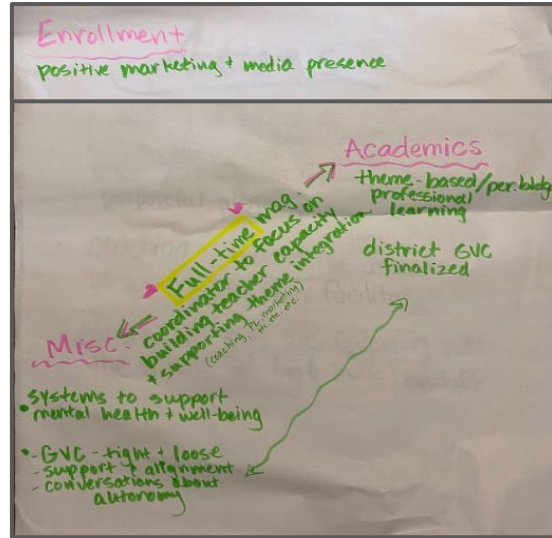 Enrollment
positive marketing + media presence
Academics
theme-based/per.bldg
professional
learning
district GVC
finalized
Full-time mag
coordinator to focus on
building teacher capacity
+ supporting theme integration
(coaching, PL, marketing,
etc. etc.
Misc.
• systems to support
mental health + well-being
• - GVC - tight + loose
- support + alignment
- conversations about
autonomy